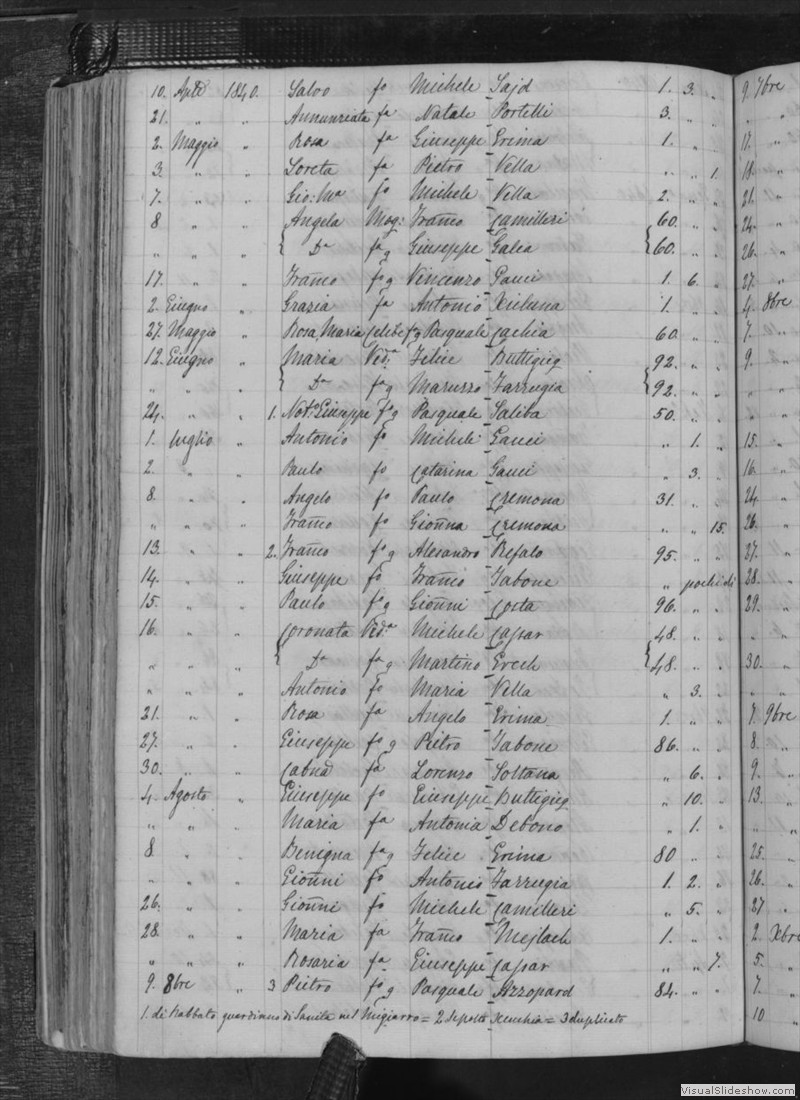 10. Aple 1840. Salvo fo Michele Sajd 1. 3. „ 9. 7bre
21. „ „ Annunziata fa Natale Portelli 3. „ „ „ „
2. Maggio „ Rosa fa Giuseppe Grima 1. „ „ 17. „
3. „ „ Loreta fa Pietro Vella „ „ 1. 18. „
7. „ „ Gio: Ma fo Michele Vella 2. „ „ 21. „
8 „ „ Angela Mog: Franco Camilleri 60. „ „ 24. „
„ „ „ Da fa g Giuseppe Galea 60. „ „ 26. „
17. „ „ Franco fo g Vincenzo Gauci 1. 6. „ 27. „
2. Giugno „ Grazia fa Antonio Xicluna 1. „ „ 4. 8bre
27. Maggio „ Rosa Maria Celibe fa g Pasquale Cachia 60. „ „ 7. „
12. Giugno „ Maria Veda Felice Buttigieg 92. „ „ 9. „
„ „ „ Da fa g Maruzzo Farrugia 92. „ „
24. „ „ 1. Notо Giuseppe fo g Pasquale Saliba 50. „ „
1. Luglio „ Antonio fo Michele Gauci „ 1. „ 15. „
2. „ „ Paulo fo Catarina Gauci „ 3. „ 16. „
8. „ „ Angelo fo Paulo Cremona 31. „ „ 24. „
„ „ „ Franco fo Gionna Cremona „ „ 15. 26. „
13. „ „ 2. Franco fo g Alesandro Refalo 95. „ „ 27. „
14. „ „ Giuseppe fo Franco Tabone „ pochi di 28. „
15. „ „ Paulo fo g Gionni Costa 96. „ „ 29. „
16. „ „ Coronata Veda Michele Cassar 48. „ „ „ „
„ „ „ Da fa g Martino Grech 48. „ „ 30. „
„ „ „ Antonio fo Maria Vella „ 3. „ „ „
21. „ „ Rosa fa Angelo Grima 1. „ „ 7. 9bre
27. „ „ Giuseppe fo g Pietro Tabone 86. „ „ 8. „
30. „ „ fa Lorenzo Soltana „ 6. „ 9. „
4. Agosto „ Giuseppe fo Giuseppe Buttigieg „ 10. „ 13. „
„ „ „ Maria fa Antonia Debono „ 1. „ „ „
8. „ „ Benigna fa g Felice Grima 80 „ „ 25. „
„ „ „ Gionni fo Antonio Farrugia 1. 2. „ 26. „
26. „ „ Gionni fo Michele Camilleri „ 5. „ 27 „
28. „ „ Maria fa Franco Mejlach 1. „ „ 2. Xbre
„ „ „ Rosaria fa Giuseppe Cassar „ „ 7. 5. „
9. 8bre „ 3 Pietro fo g Pasquale Azzopard 84. „ „ 7. „
1. di Rabbato guardiano di Sanita nel Migiarro = 2 deposto Xeuchia = 3 duplicato 10
VisualSlideshow.com